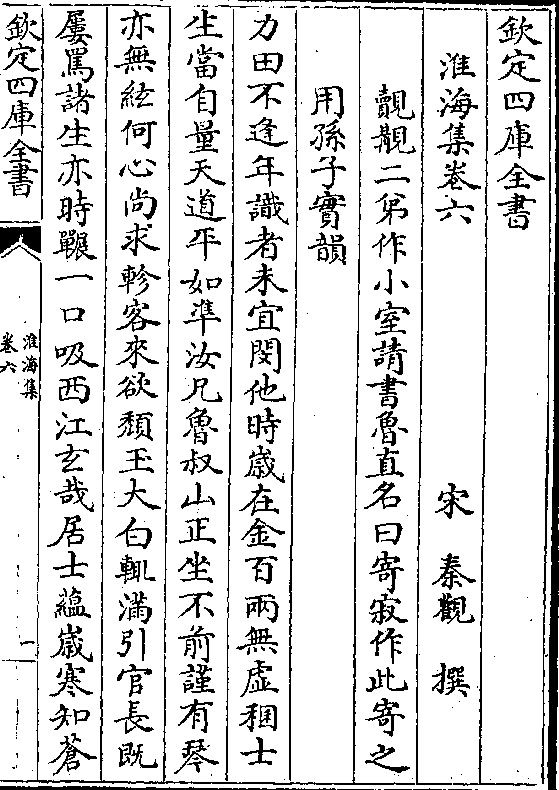 欽定四庫全書
淮海集卷六
宋 秦觀 撰
覿覯二弟作小室請書魯直名曰寄寂作此寄之
用孫子實韻
力田不逢年識者未宜閔他時歲在金百兩無虛稇士
生當自量天道平如準汝兄魯叔山正坐不前謹有琴
亦無絃何心尚求軫客來欲頽玉大白輒滿引官長既
屢罵諸生亦時囅一口吸西江玄哉居士蘊歲寒知蒼
欽定四庫全書
淮海集
卷六
一